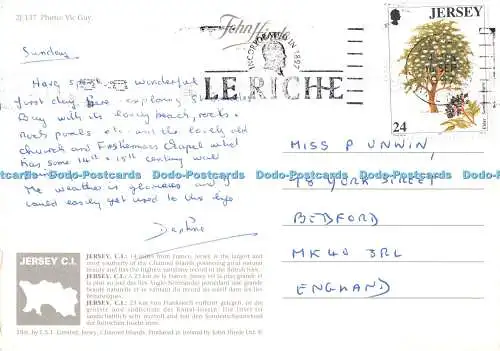 2J 137 Photo: Vic Guy.
John Hinde
JERSEY
INCORPORATED IN 1897
LE RICHE
24
Sunday
Have wonderful
first day here exploring
Bay with its lovely beach, rocks
rock pools etc. and the lovely old
church and Fishermans Chapel which
has some 14th & 15th century wall
Dodo-Postcards Dodo-Postcards Dodo-Postcards Dodo-Postcards Dodo-Postcards
The weather is glorious and I
could easily get used to this life
Daphne
MISS P UNWIN,
78 YORK STREET
BEDFORD
MK40 3RL
ENGLAND
JERSEY C.I.
JERSEY C.I.: 14 miles from France, Jersey is the largest and
most southerly of the Channel Islands possessing great natural
beauty and has the highest sunshine record in the British Isles.
JERSEY, C.I.: à 23 km de la France, Jersey est la plus grande et
la plus au sud des îles Anglo-Normandes possédant une grande
beauté naturelle et le record du soleil dans les îles
Britanniques.
JERSEY, C.I.: 23 km von Frankreich entfernt gelegen, ist die
grösste und südlichste der Kanal-Inseln. Die Insel ist
landschaftlich sehr reizvoll und hat den Sonnenscheinrekord
der Britischen Inseln inne.
Dist. by C.S.I. Limited, Jersey, Channel Islands. Produced in Ireland by John Hinde Ltd. ®